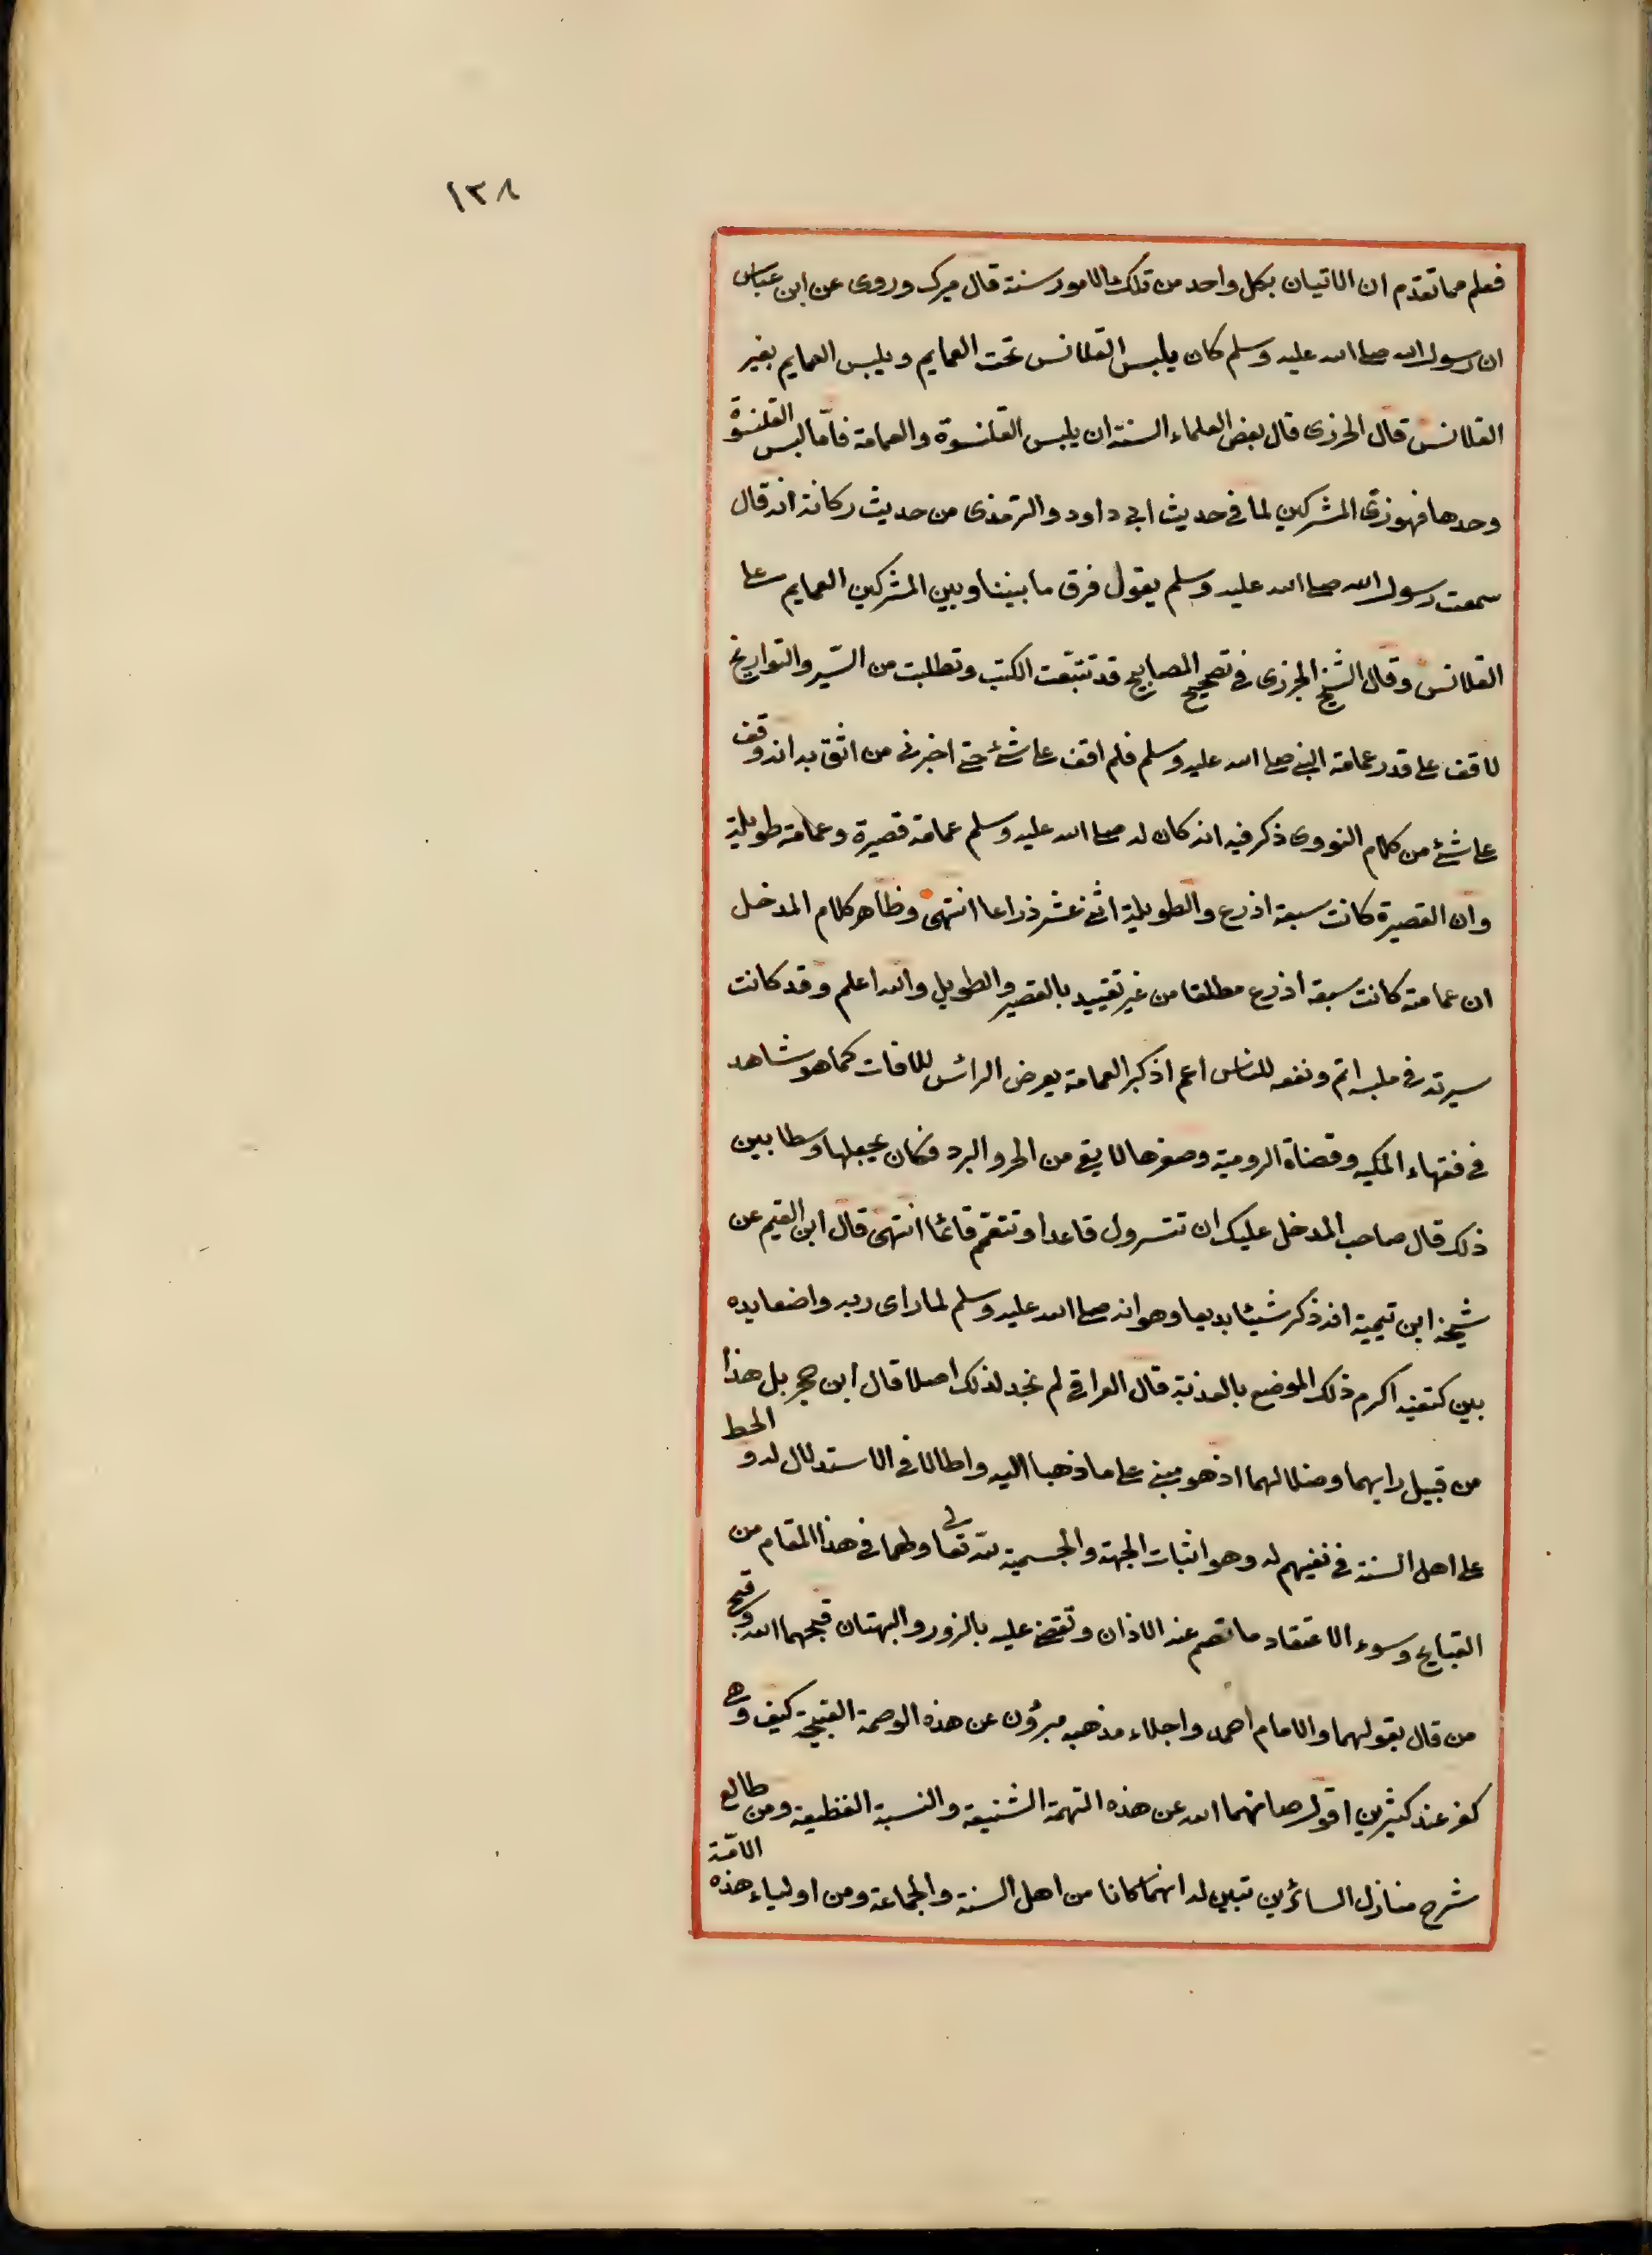 ١٣٨
فعلم مما تقدم ان الاتيان بكل واحد من تلك الامور سنة قال ميرك وروى عن ابن عباس
ان رسول الله صلى الله عليه وسلم كان يلبس القلانس تحت العمايم ويلبس العمايم بغير
القلانس قال الجزري قال بعض العلماء السنة ان يلبس القلنسوة والعمامة فاما لبس القلنسوة
وحدها فهو زي المشركين لما في حديث ابي داود والترمذي من حديث ركانة انه قال
سمعت رسول الله صلى الله عليه وسلم يقول فرق ما بيننا وبين المشركين العمايم على
القلانس وقال الشيخ الجزري في تصحيح المصابيح قد تتبعت الكتب وتطلبت من السير والتواريخ
لاقف على قدر عمامة النبي صلى الله عليه وسلم فلم اقف على شئ حتى اخبرني من اثق به انه وقف
على شئ من كلام النووي ذكر فيه انه كان له صلى الله عليه وسلم عمامة قصيرة وعمامة طويلة
وان القصيرة كانت سبعة اذرع والطويلة اثنى عشر ذراعا انتهى وظاهر كلام المدخل
ان عمامته كانت سبعة اذرع مطلقا من غير تقييد بالقصير والطويل والله اعلم وقد كانت
سيرته في ملبسه اتم ونفعه للناس اعم اذ كبر العمامة يعرض الرأس للافات كما هو شاهد
في فقهاء المكيه وقضاة الرومية وصغرها لا يقى من الحر والبرد فكان يجعلها وسطا بين
ذلك قال صاحب المدخل عليك ان تتسرول قاعدا وتتعمم قائما انتهى قال ابن القيم عن
شيخه ابن تيمية انه ذكر شيئا بديعا وهو انه صلى الله عليه وسلم لما راى ربه واضعا يده
بين كتفيه اكرم ذلك الموضع بالعذبة قال العراقي لم نجد لذلك اصلا قال ابن حجر بل هذا
من قبيل رايهما وضلالهما اذ هو مبني على ما ذهبا اليه واطالا في الاستدلال له والحط
على اهل السنة في نفيهم له وهو اثبات الجهة والجسمية لله تعالى ولهما في هذا المقام من
القبايح وسوء الاعتقاد ما تصم عنه الاذان وتقضى عليه بالزور والبهتان قبحهما الله وقبح
من قال بقولهما والامام احمد واجلاء مذهبه مبرؤن عن هذه الوصمة القبيحة كيف وهي
كفر عند كثيرين اقول صانهما الله عن هذه التهمة الشنيعة والنسبة الفظيعة ومن طالع
شرح منازل السائرين تبين له انهما كانا من اهل السنة والجماعة ومن اولياء هذه الامة